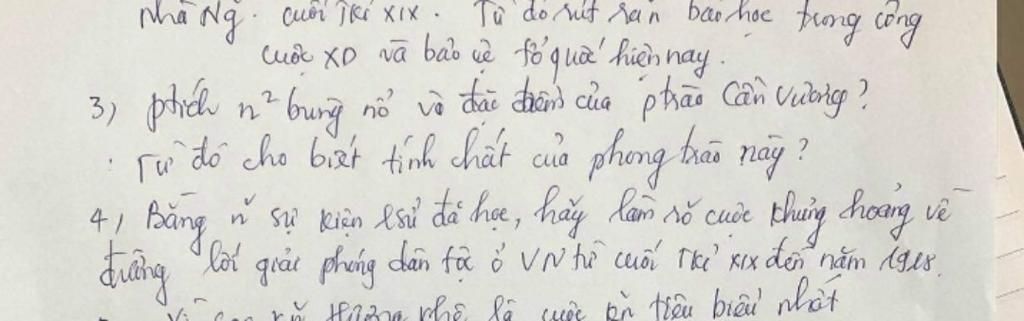 nhà Ng. cuối Tkỉ XIX. Từ đó rút ra bài học trong công
cuộc XD và bảo vệ tổ quốc hiện nay.
3) ptích n² bùng nổ và đặc điểm của ptrào Cần Vương?
Từ đó cho biết tính chất của phong trào này?
4) Bằng n~ sự kiện lsử đã học, hãy làm rõ cuộc khủng hoảng về
đường lối giải phóng dân tộc ở VN từ cuối Tkỉ XIX đến năm 1918.
Hương Khê là cuộc kn tiêu biểu nhất